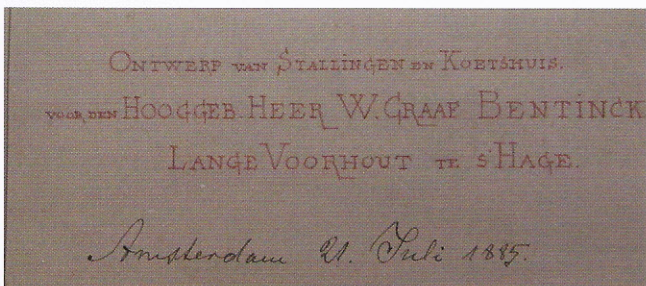 ONTWERP VAN STALLINGEN EN KOETSHUIS.
VOOR DEN HOOGGEB. HEER W. GRAAF BENTINCK
LANGE VOORHOUT TE S'HAGE.
Amsterdam 21. Juli 1885.